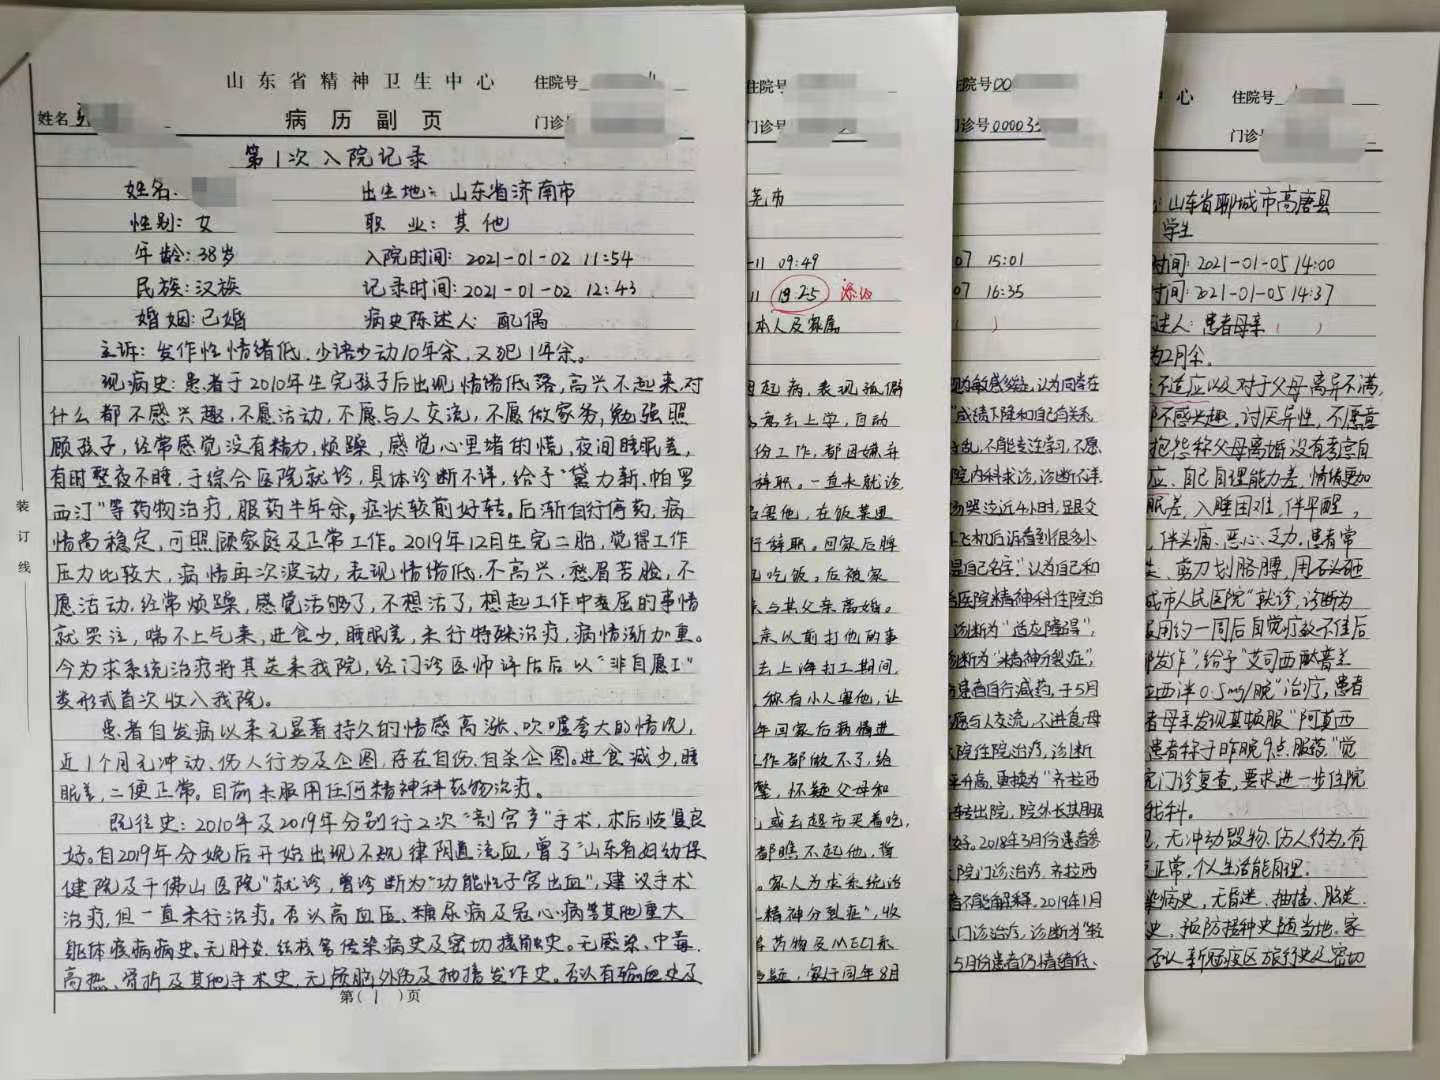 山东省精神卫生中心 住院号
姓名 病历副页 门诊
第1次入院记录
姓名: 出生地: 山东省济南市
性别: 女 职业: 其他
年龄: 38岁 入院时间: 2021-01-02 11:54
民族: 汉族 记录时间: 2021-01-02 12:43
婚姻: 已婚 病史陈述人: 配偶
主诉: 发作性情绪低、少语少动10年余,又犯1年余。
现病史: 患者于2010年生完孩子后出现情绪低落,高兴不起来,对
什么都不感兴趣,不愿活动,不愿与人交流,不愿做家务,勉强照
顾孩子,经常感觉没有精力,烦躁,感觉心里堵的慌,夜间睡眠差,
有时整夜不睡,于综合医院就诊,具体诊断不详,给予“黛力新、帕罗
西汀”等药物治疗,服药半年余,症状较前好转。后渐自行停药,病
情尚稳定,可照顾家庭及正常工作。2019年12月生完二胎,觉得工作
压力比较大,病情再次波动,表现情绪低,不高兴,愁眉苦脸,不
愿活动,经常烦躁,感觉活够了,不想活了,想起工作中委屈的事情
就哭泣,喘不上气来,进食少,睡眠差,未行特殊治疗,病情渐加重。
今为求系统治疗将其送来我院,经门诊医师评估后以“非自愿I”
类形式首次收入我院。
患者自发病以来无显著持久的情感高涨、吹嘘夸大的情况,
近1个月无冲动、伤人行为及企图,存在自伤、自杀企图。进食减少,睡
眠差,二便正常。目前未服用任何精神科药物治疗。
既往史: 2010年及2019年分别行2次“剖宫产”手术,术后恢复良
好。自2019年分娩后开始出现不规律阴道流血,曾于“山东省妇幼保
健院及千佛山医院”就诊,曾诊断为“功能性子宫出血”,建议手术
治疗,但一直未行治疗。否认高血压、糖尿病及冠心病等其他重大
躯体疾病病史。无肝炎、结核等传染病史及密切接触史。无感染、中毒、
高热、骨折及其他手术史,无颅脑外伤及抽搐发作史。否认有输血史及
第(1)页
装订线
住院号
门诊号
芜市
-11 09:49
11 19:25
本人及家属
起病,表现孤僻
去上学,自动
份工作,都因嫌弃
辞职。一直未就诊
害他,在饭菜里
行辞职。回家后睡
吃饭。后被家
与其父亲离婚。
亲以前打他的事
去上海打工期间,
称有小人害他,让
年回家后病情进
工作都做不了,给
怀疑父母和
或去超市买着吃,
都瞧不起他,背
家人为求系统诊
精神分裂症”,收
药物及MECT系
于同年8月
住院号00
门诊号00003
07 15:01
07 16:35
敏感多疑,认为同学在
“成绩下降和自己有关系
乱,不能专注学习,不愿
院内科求诊,诊断不详
哭泣近4小时,且跟父
飞机后诉看到很多小
是自己名字,”认为自己和
医院精神科住院治
诊断为“适应障碍”,
诊断为“精神分裂症”,
患者自行减药,于5月
愿与人交流,不进食,母
院住院治疗,诊断
升高,更换为“齐拉西
转出院,院外长期服
好。2018年3月份患者
院门诊治疗,齐拉西
不能解释,2019年1月
门诊治疗,诊断为“轻
5月份患者仍情绪低、
中心 住院号
门诊号
山东省聊城市高唐县
学生
时间: 2021-01-05 14:00
时间: 2021-01-05 14:37
述人: 患者母亲( )
为2月余。
不适应以及对于父母离异不满,
不感兴趣,讨厌异性,不愿意
抱怨称父母离婚没有考虑自
应、自己自理能力差,情绪更加
眠差,入睡困难,伴早醒,
伴头痛、恶心、乏力,患者常
剪刀划胳膊,用石头砸
城市人民医院”就诊,诊断为
服用约一周后自觉疗效不佳后
发作”,给予“艾司西酞普兰
西泮0.5mg/晚”治疗,患者
者母亲发现其顿服“阿莫西
患者称于昨晚9点服药,“觉
门诊复查,要求进一步住院
我科。
无冲动毁物、伤人行为,有
正常,个人生活能自理。
病史,无昏迷、抽搐、脑炎、
史,预防接种史随当地。家
否认新冠疫区旅行史及密切